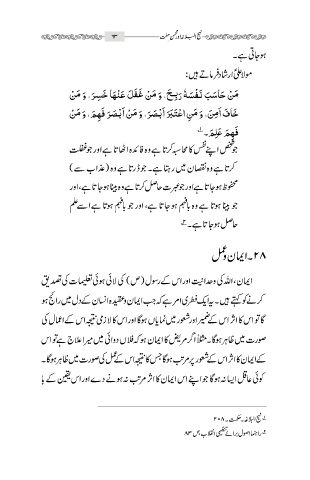 نہج البلاغہ اور محسن ملت
۶۳
ہو جاتی ہے۔
مولا علیؑ ارشاد فرماتے ہیں:
مَنْ حَاسَبَ نَفْسَهٗ رَبِحَ، وَ مَنْ غَفَلَ عَنْهَا خَسِرَ، وَ مَنْ
خَافَ اَمِنَ، وَ مَنِ اعْتَبَرَ اَبْصَرَ، وَ مَنْ اَبْصَرَ فَهِمَ، وَ مَنْ
فَهِمَ عَلِمَ۔ ۱
جو شخص اپنے نفس کا محاسبہ کرتا ہے وہ فائدہ اٹھاتا ہے اور جو غفلت
کرتا ہے وہ نقصان میں رہتا ہے۔ جو ڈرتا ہے وہ (عذاب سے)
محفوظ ہو جاتا ہے اور جو عبرت حاصل کرتا ہے وہ بینا ہو جاتا ہے، اور
جو بینا ہوتا ہے وہ بافہم ہو جاتا ہے، اور جو بافہم ہوتا ہے اسے علم
حاصل ہو جاتا ہے۔ ۲
۲۸۔ ایمان و عمل
ایمان، اللہ کی وحدانیت اور اس کے رسول (ص) کی لائی ہوئی تعلیمات کی تصدیق
کرنے کو کہتے ہیں۔ یہ ایک فطری امر ہے کہ جب ایمان و عقیدہ انسان کے دل میں رائج ہو
گا تو اس کا اثر اس کے ضمیر اور شعور میں نمایاں ہوگا اور اس کا لازمی نتیجہ اس کے اعمال کی
صورت میں ظاہر ہوگا۔ مثلاً اگر مریض کا ایمان ہو کہ فلاں دوائی میں میرا علاج ہے تو اس
کے ایمان کا اثر اس کے شعور پر مرتب ہوگا جس کا نتیجہ اس کے عمل کی صورت میں ظاہر ہوگا۔
کوئی عاقل ایسا نہ ہوگا جو اپنے اس ایمان کا اثر مرتب نہ ہونے دے اور اس یقین کے با
۱ نہج البلاغہ۔ حکمت۔ ۲۰۸
۲ راہنما اصول برائے تکمیلی انقلاب ص ۸۳